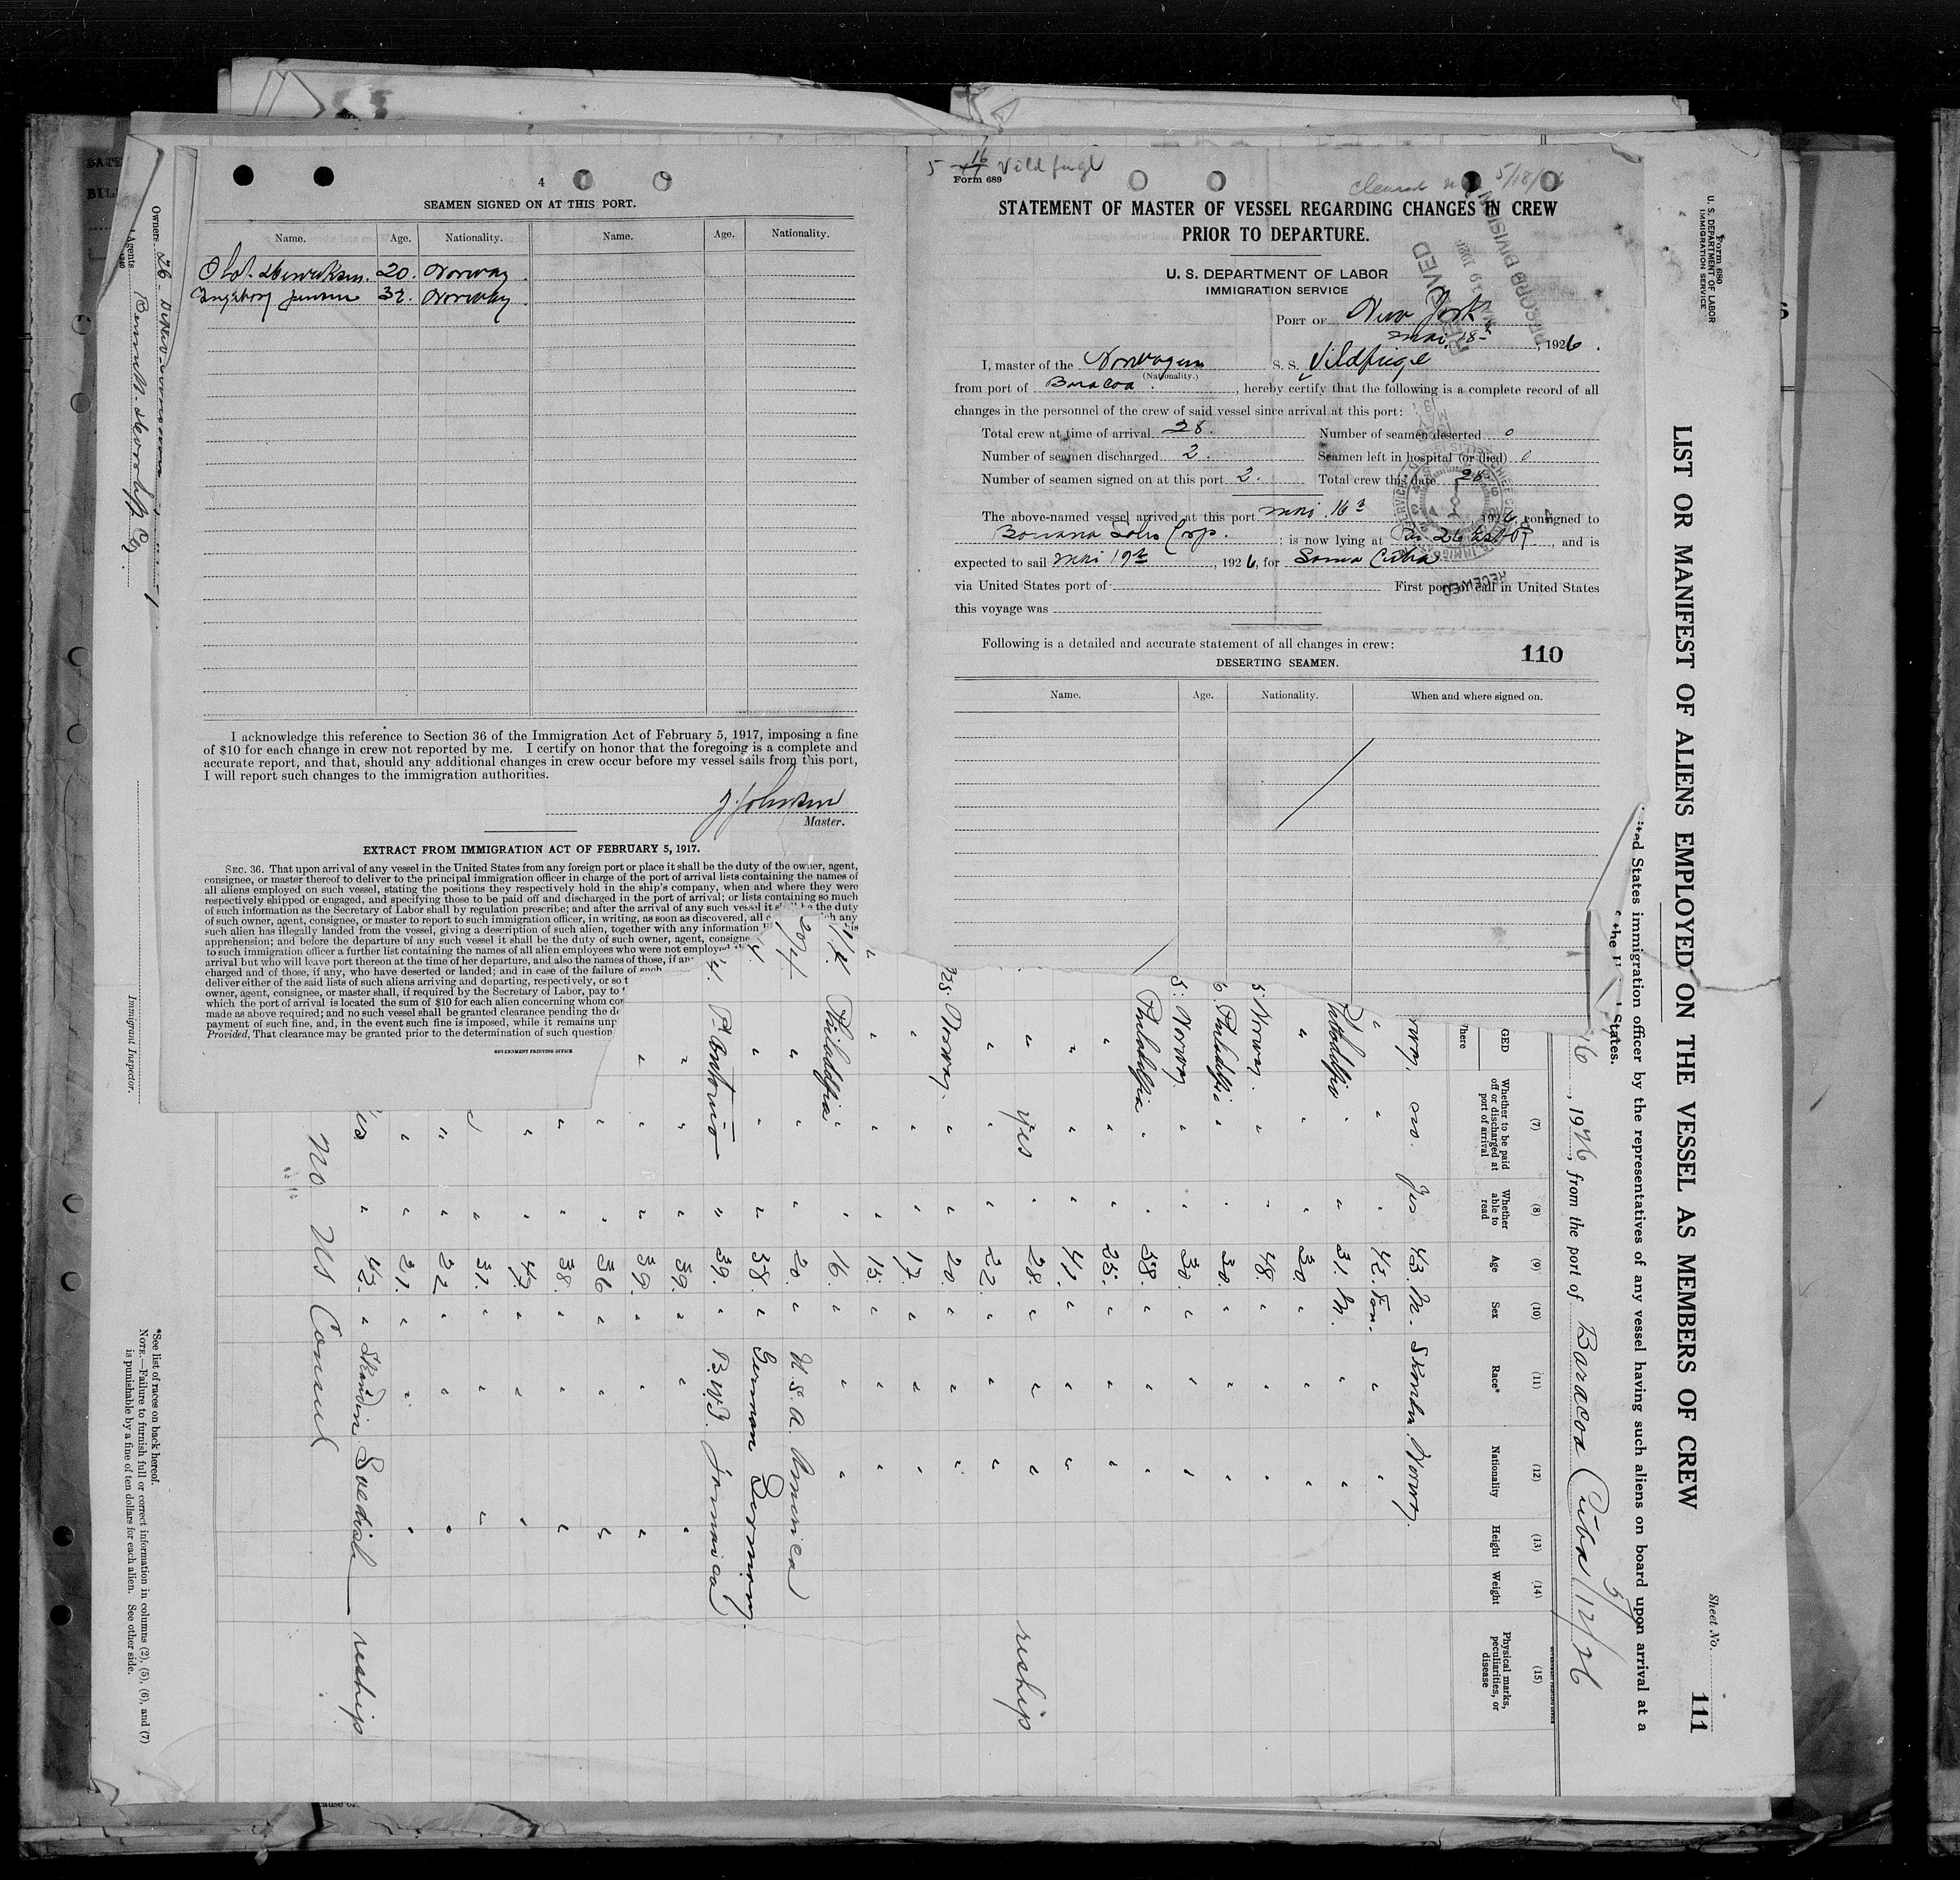 4
SEAMEN SIGNED ON AT THIS PORT.
Name. Age. Nationality. Name. Age. Nationality.
20. Norway
32. Norway
I acknowledge this reference to Section 36 of the Immigration Act of February 5, 1917, imposing a fine
of $10 for each change in crew not reported by me. I certify on honor that the foregoing is a complete and
accurate report, and that, should any additional changes in crew occur before my vessel sails from this port,
I will report such changes to the immigration authorities.
Master.
EXTRACT FROM IMMIGRATION ACT OF FEBRUARY 5, 1917.
SEC. 36. That upon arrival of any vessel in the United States from any foreign port or place it shall be the duty of the owner, agent,
consignee, or master thereof to deliver to the principal immigration officer in charge of the port of arrival lists containing the names of
all aliens employed on such vessel, stating the positions they respectively hold in the ship's company, when and where they were
respectively shipped or engaged, and specifying those to be paid off and discharged in the port of arrival; or lists containing so much
of such information as the Secretary of Labor shall by regulation prescribe; and after the arrival of any such vessel it the duty
of such owner, agent, consignee, or master to report to such immigration officer, in writing, as soon as discovered, all any
such alien has illegally landed from the vessel, giving a description of such alien, together with any information
apprehension; and before the departure of any such vessel it shall be the duty of such owner, agent,
to such immigration officer a further list containing the names of all alien employees who were not
arrival but who will leave port thereon at the time of her departure, and also the names of those, if
charged and of those, if any, who have deserted or landed; and in case of the failure of
deliver either of the said lists of such aliens arriving and departing, respectively, or so
owner, agent, consignee, or master shall, if required by the Secretary of Labor, pay to
which the port of arrival is located the sum of $10 for each alien concerning whom
made as above required; and no such vessel shall be granted clearance pending the
payment of such fine, and, in the event such fine is imposed, while it remains
Provided, That clearance may be granted prior to the determination of such question
GOVERNMENT PRINTING OFFICE
5 16 Vildfugl
Form 689
5/18/
STATEMENT OF MASTER OF VESSEL REGARDING CHANGES IN CREW
PRIOR TO DEPARTURE.
U. S. DEPARTMENT OF LABOR
IMMIGRATION SERVICE
PORT OF New York
mai 18, 1926.
I, master of the Norwegian S. S. Vildfugl
(Nationality.)
from port of Baracoa, hereby certify that the following is a complete record of all
changes in the personnel of the crew of said vessel since arrival at this port:
Total crew at time of arrival 28. Number of seamen deserted 0
Number of seamen discharged 2. Seamen left in hospital (or died) 0
Number of seamen signed on at this port 2. Total crew this date 28
The above-named vessel arrived at this port mai 16, 1926, consigned to
; is now lying at 26, and is
expected to sail mai 19th, 1926, for Cuba
via United States port of First port of call in United States
this voyage was
Following is a detailed and accurate statement of all changes in crew:
110
DESERTING SEAMEN.
Name. Age. Nationality. When and where signed on.
RECEIVED
RECORD DIVISION
RECEIVED
Form 680
U. S. DEPARTMENT OF LABOR
IMMIGRATION SERVICE
Sheet No.
111
LIST OR MANIFEST OF ALIENS EMPLOYED ON THE VESSEL AS MEMBERS OF CREW
States immigration officer by the representatives of any vessel having such aliens on board upon arrival at a
States.
, 1926, from the port of Baracoa Cuba 5/12/26
(7) (8) (9) (10) (11) (12) (13) (14) (15)
Whether to be paid off or discharged at port of arrival
Whether able to read
Age
Sex
Race*
Nationality
Height
Weight
Physical marks, peculiarities, or disease
no. Yes 43. M. Norway.
" 42. "
Philadelphia " " 31. M. " "
" " " 30 " " "
Norway. " " 48. " " "
Philadelphia " " 30. " " "
Norway " " 30. " " "
Philadelphia " " 58. " " "
" " " 25. " " "
" " " 41. " " "
" yes " 28. " " " reship
" " " 22. " " "
Norway. " " 20. " " "
" " " 17. " " "
" " " 15. " " "
Philadelphia " " 16. " " "
" " " 20. " U.S.A. America
" " " 38. " German Germany.
" 39. " B.W.I. Jamaica
" " " 39. " " "
" " " 39. " " "
" " 36 " " "
" " 38. " " "
" " 47 " " "
" 31. " " "
" " 22 " " "
" " 21. " " "
" 43. " Swedish reship
No US Consul
*See list of races on back hereof.
NOTE.—Failure to furnish full or correct information in columns (2), (5), (6), and (7)
is punishable by a fine of ten dollars for each alien. See other side.
Owners
Agents
Immigrant Inspector.